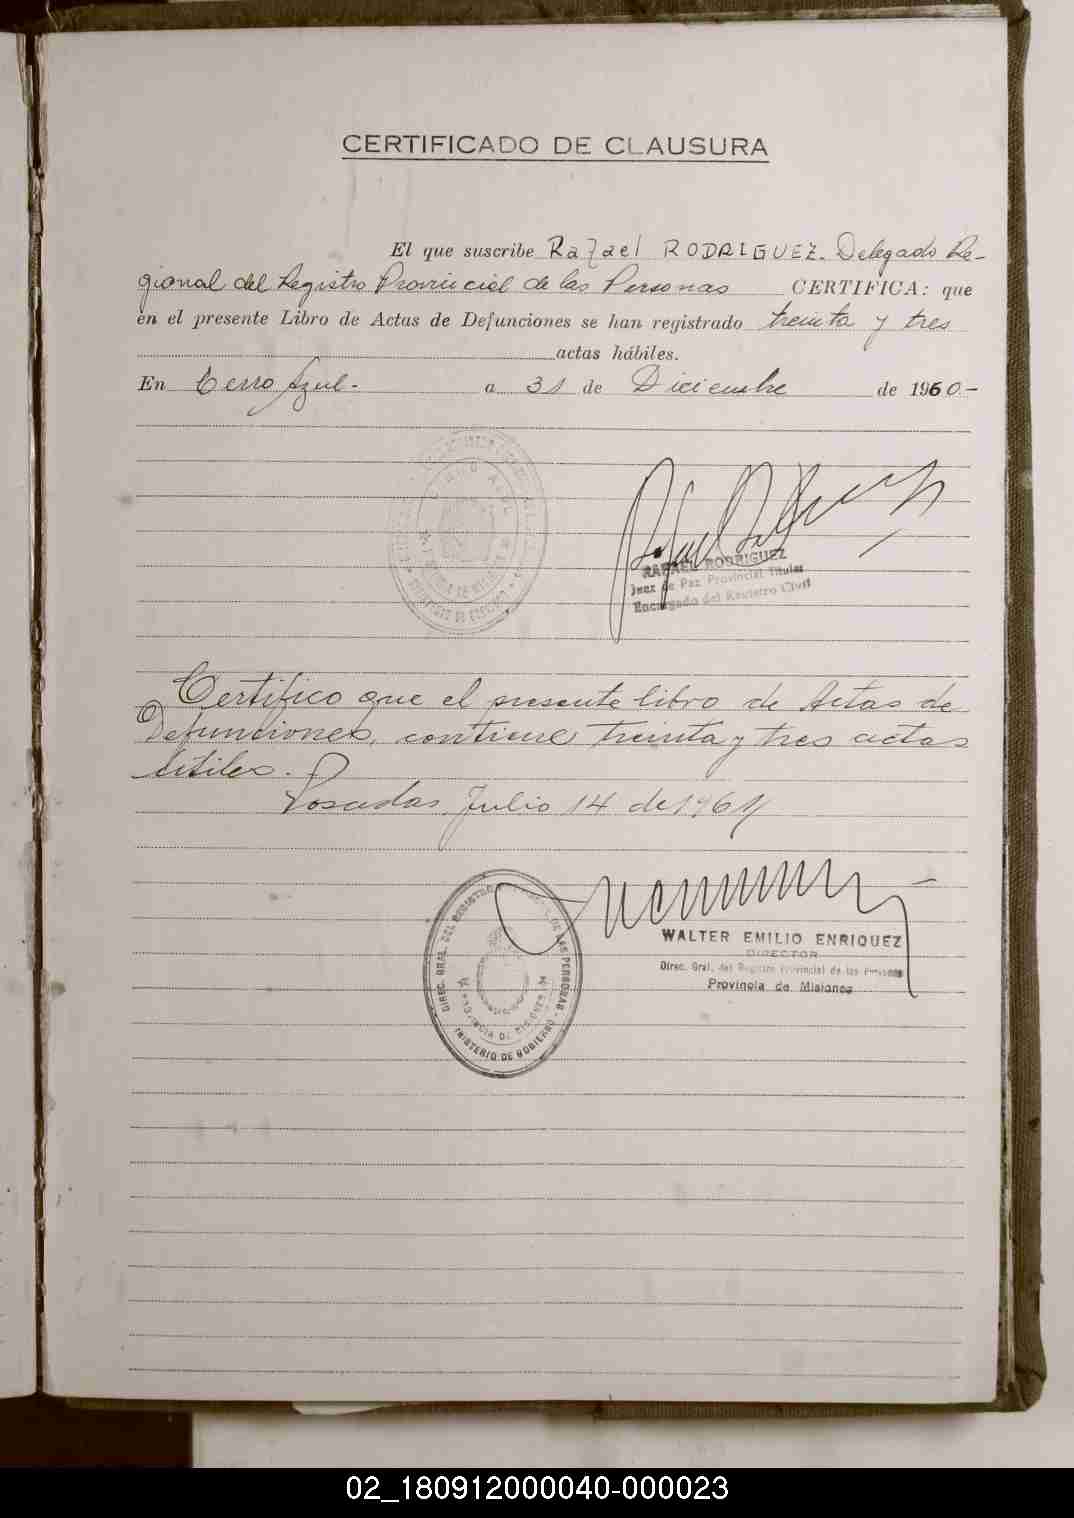 CERTIFICADO DE CLAUSURA
El que suscribe Rafael RODRIGUEZ. Delegado Re-
gional del Registro Provincial de las Personas CERTIFICA: que
en el presente Libro de Actas de Defunciones se han registrado treinta y tres
actas hábiles.
En Cerro Azul.- a 31 de Diciembre de 1960-
CERRO AZUL
RAFAEL RODRIGUEZ
Juez de Paz Provincial Titular
Encargado del Registro Civil
Certifico que el presente libro de Actas de
Defunciones, contiene treinta y tres actas
útiles.
Posadas Julio 14 de 1961
DIREC. GRAL. DEL REGISTRO DE LAS PERSONAS
PROVINCIA DE MISIONES
MINISTERIO DE GOBIERNO
WALTER EMILIO ENRIQUEZ
DIRECTOR
Direc. Gral. del Registro Provincial de las Personas
Provincia de Misiones
02_180912000040-000023